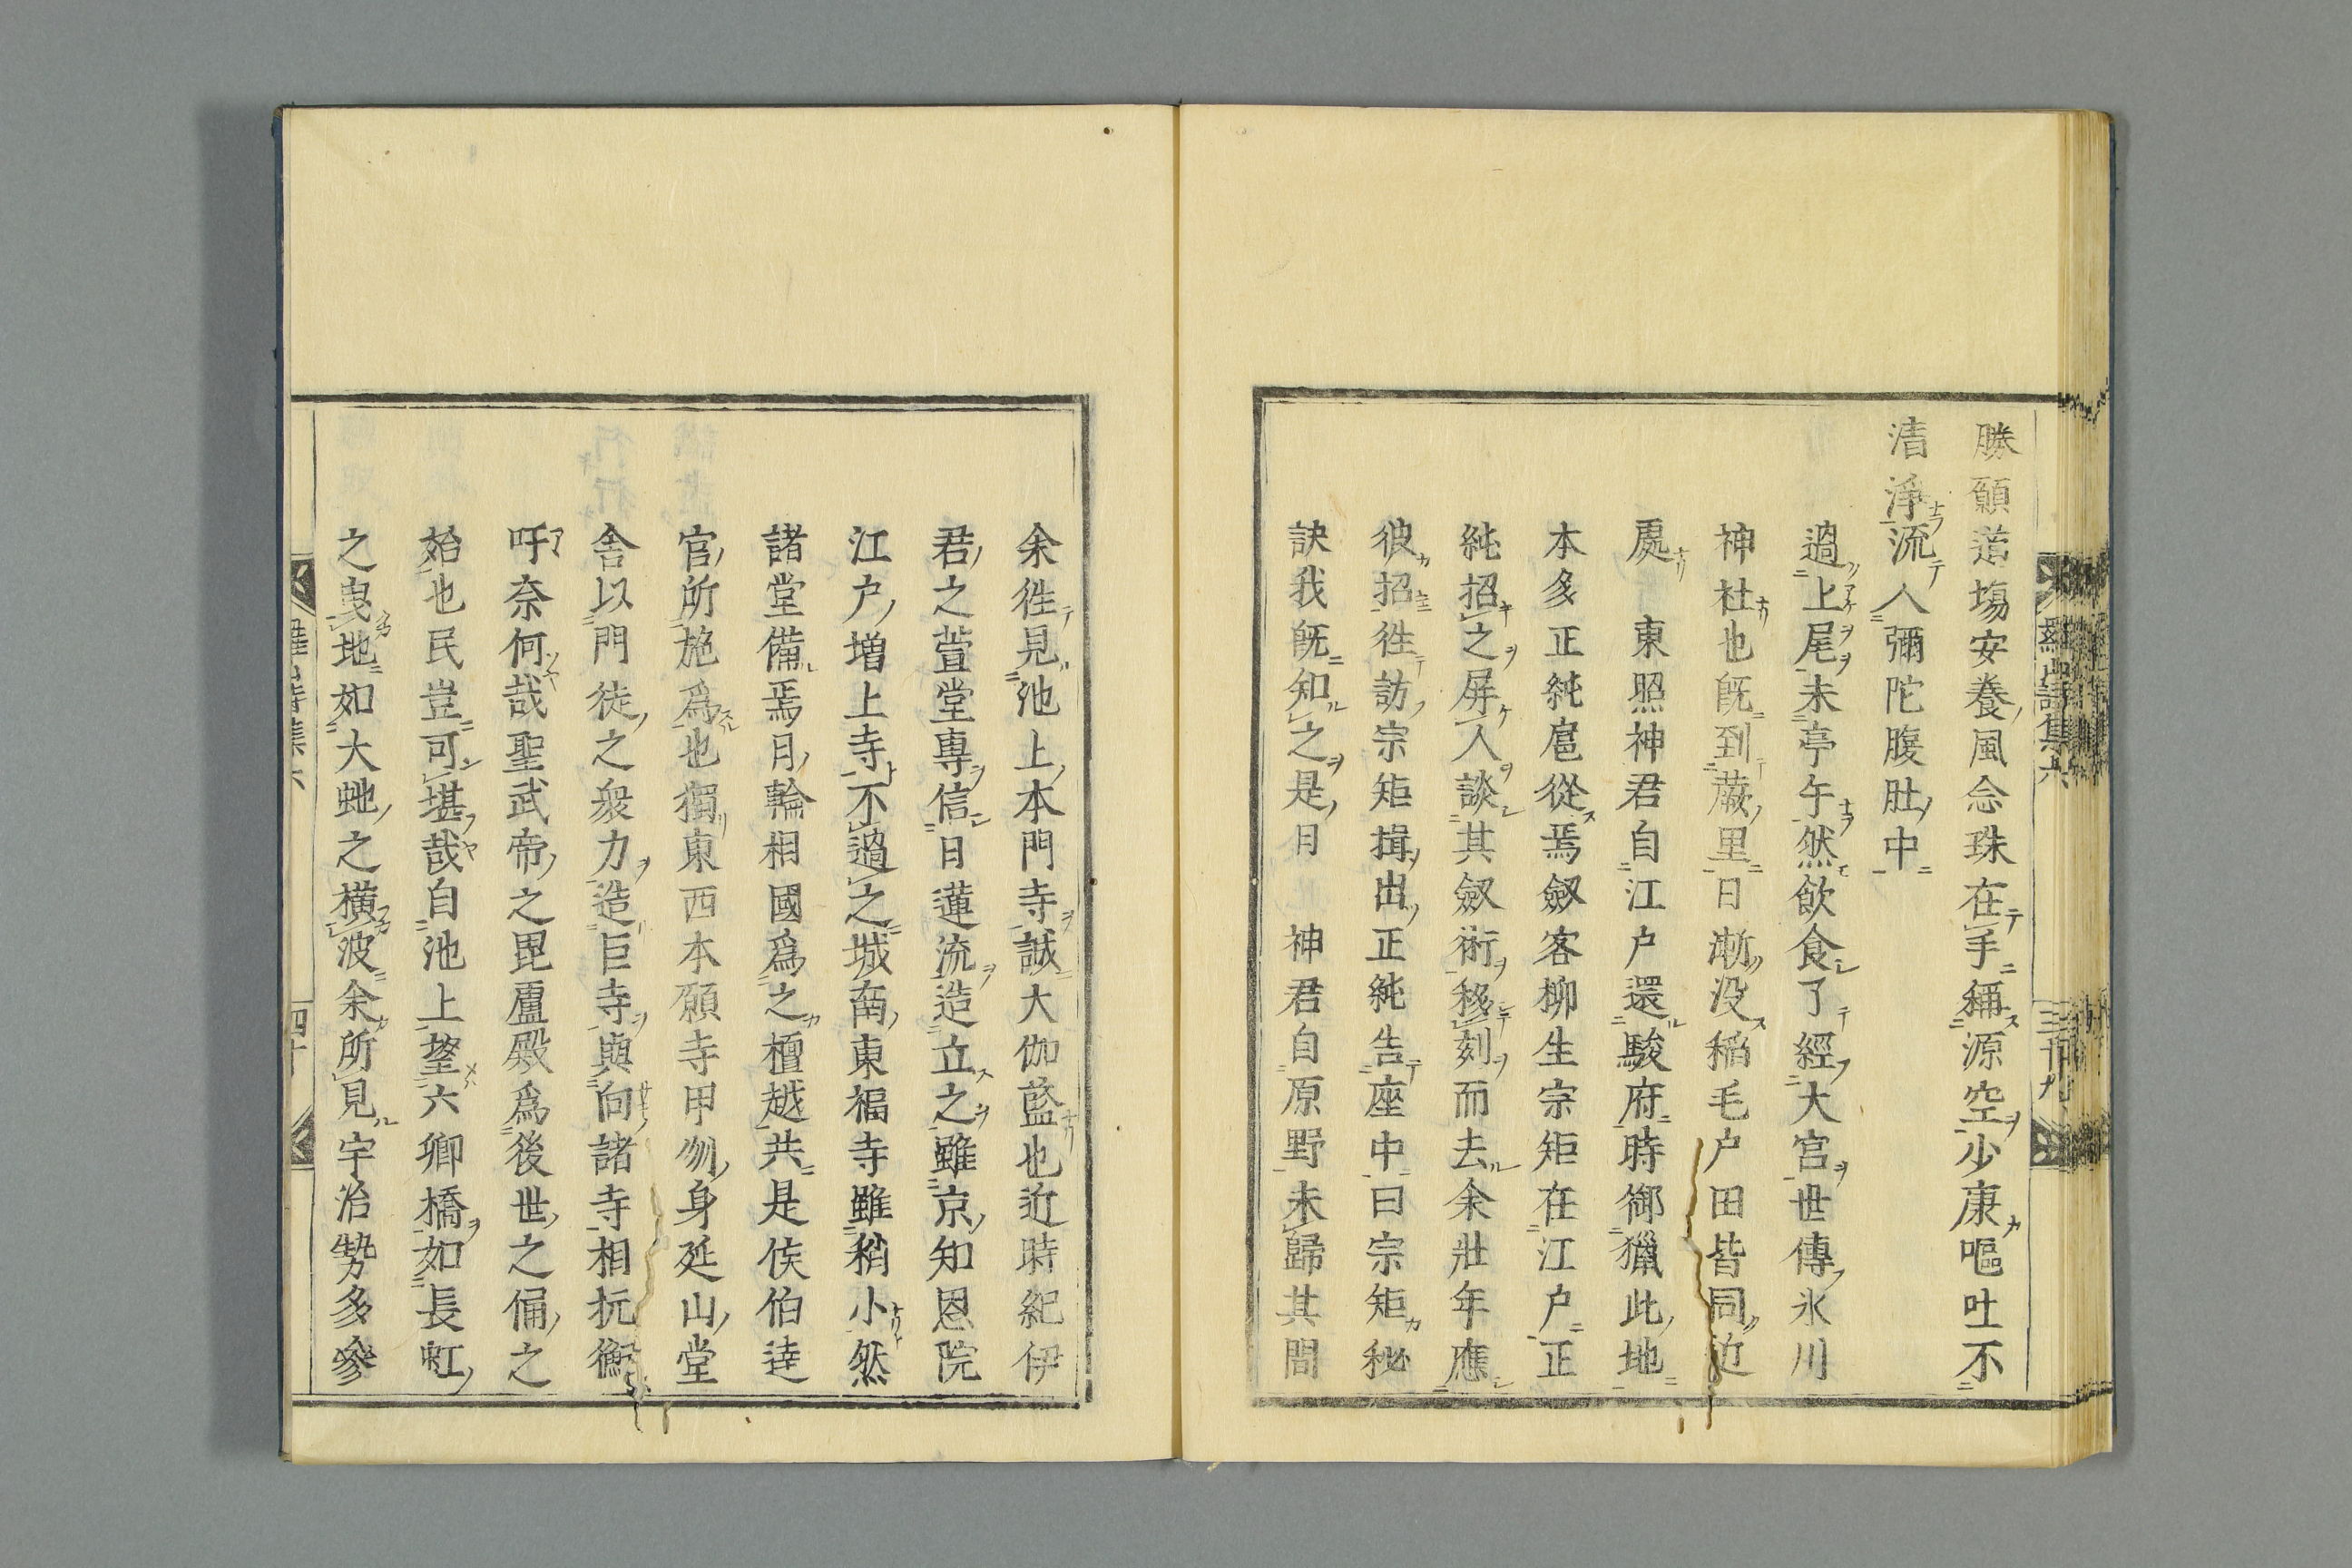 勝願道場安養風念珠在手稱源空少康嘔吐不
清淨流入彌陀腹肚中
過上尾未亭午然飲食了經大宮世傳氷川
神社也既到蕨里日漸没稲毛戸田皆同近
處 東照神君自江戸還駿府時御獵此地
本多正純扈從焉劔客柳生宗矩在江戸正
純招之屏人談其劔術移刻而去余壯年應
彼招徃訪宗矩揖出正純告座中曰宗矩秘
訣我既知之是日 神君自原野未歸其間
羅山詩集六
三十九
余徃見池上本門寺誠大伽藍也近時紀伊
君之萱堂專信日蓮流造立之雖京知恩院
江戸増上寺不過之城南東福寺雖稍小然
諸堂備焉月輪相國爲之檀越共是侯伯達
官所施爲也獨東西本願寺甲刕身延山堂
舎以門徒之衆力造巨寺與向諸寺相抗衡
吁奈何哉聖武帝之毘盧殿爲後世之俑之
始也民豈可堪哉自池上望六郷橋如長虹
之曳地如大虵之横波余所見宇治勢多參
羅山詩集六
四十